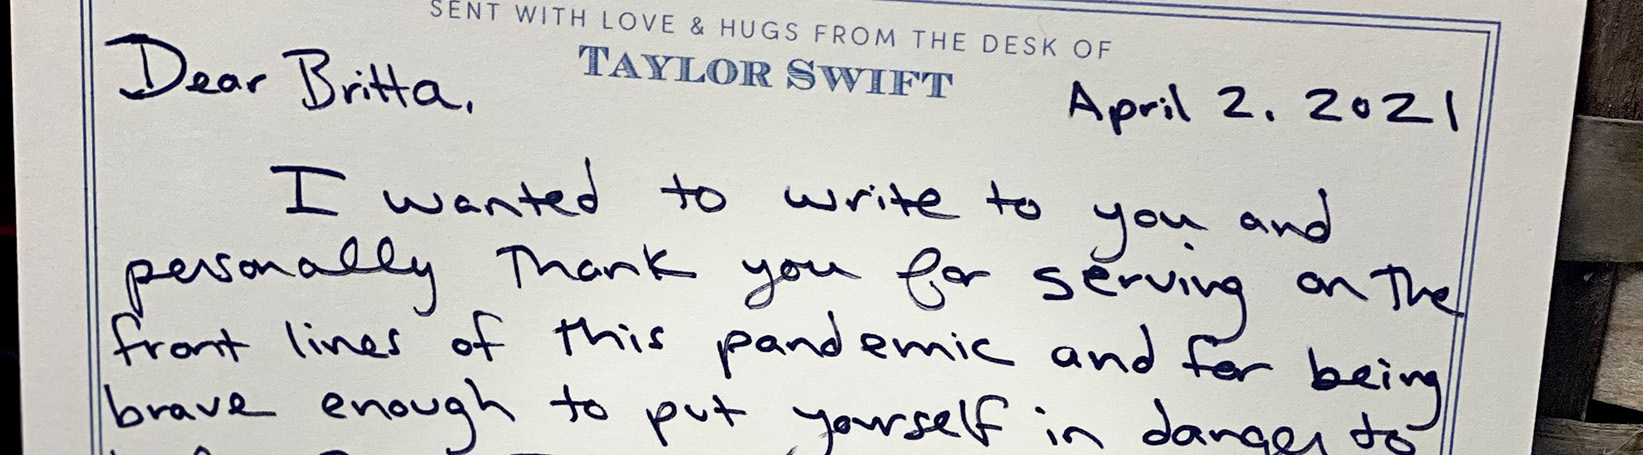 SENT WITH LOVE & HUGS FROM THE DESK OF
TAYLOR SWIFT
Dear Britta,
April 2. 2021
I wanted to write to you and
personally Thank you for serving on The
front lines of this pandemic and for being
brave enough to put yourself in danger to